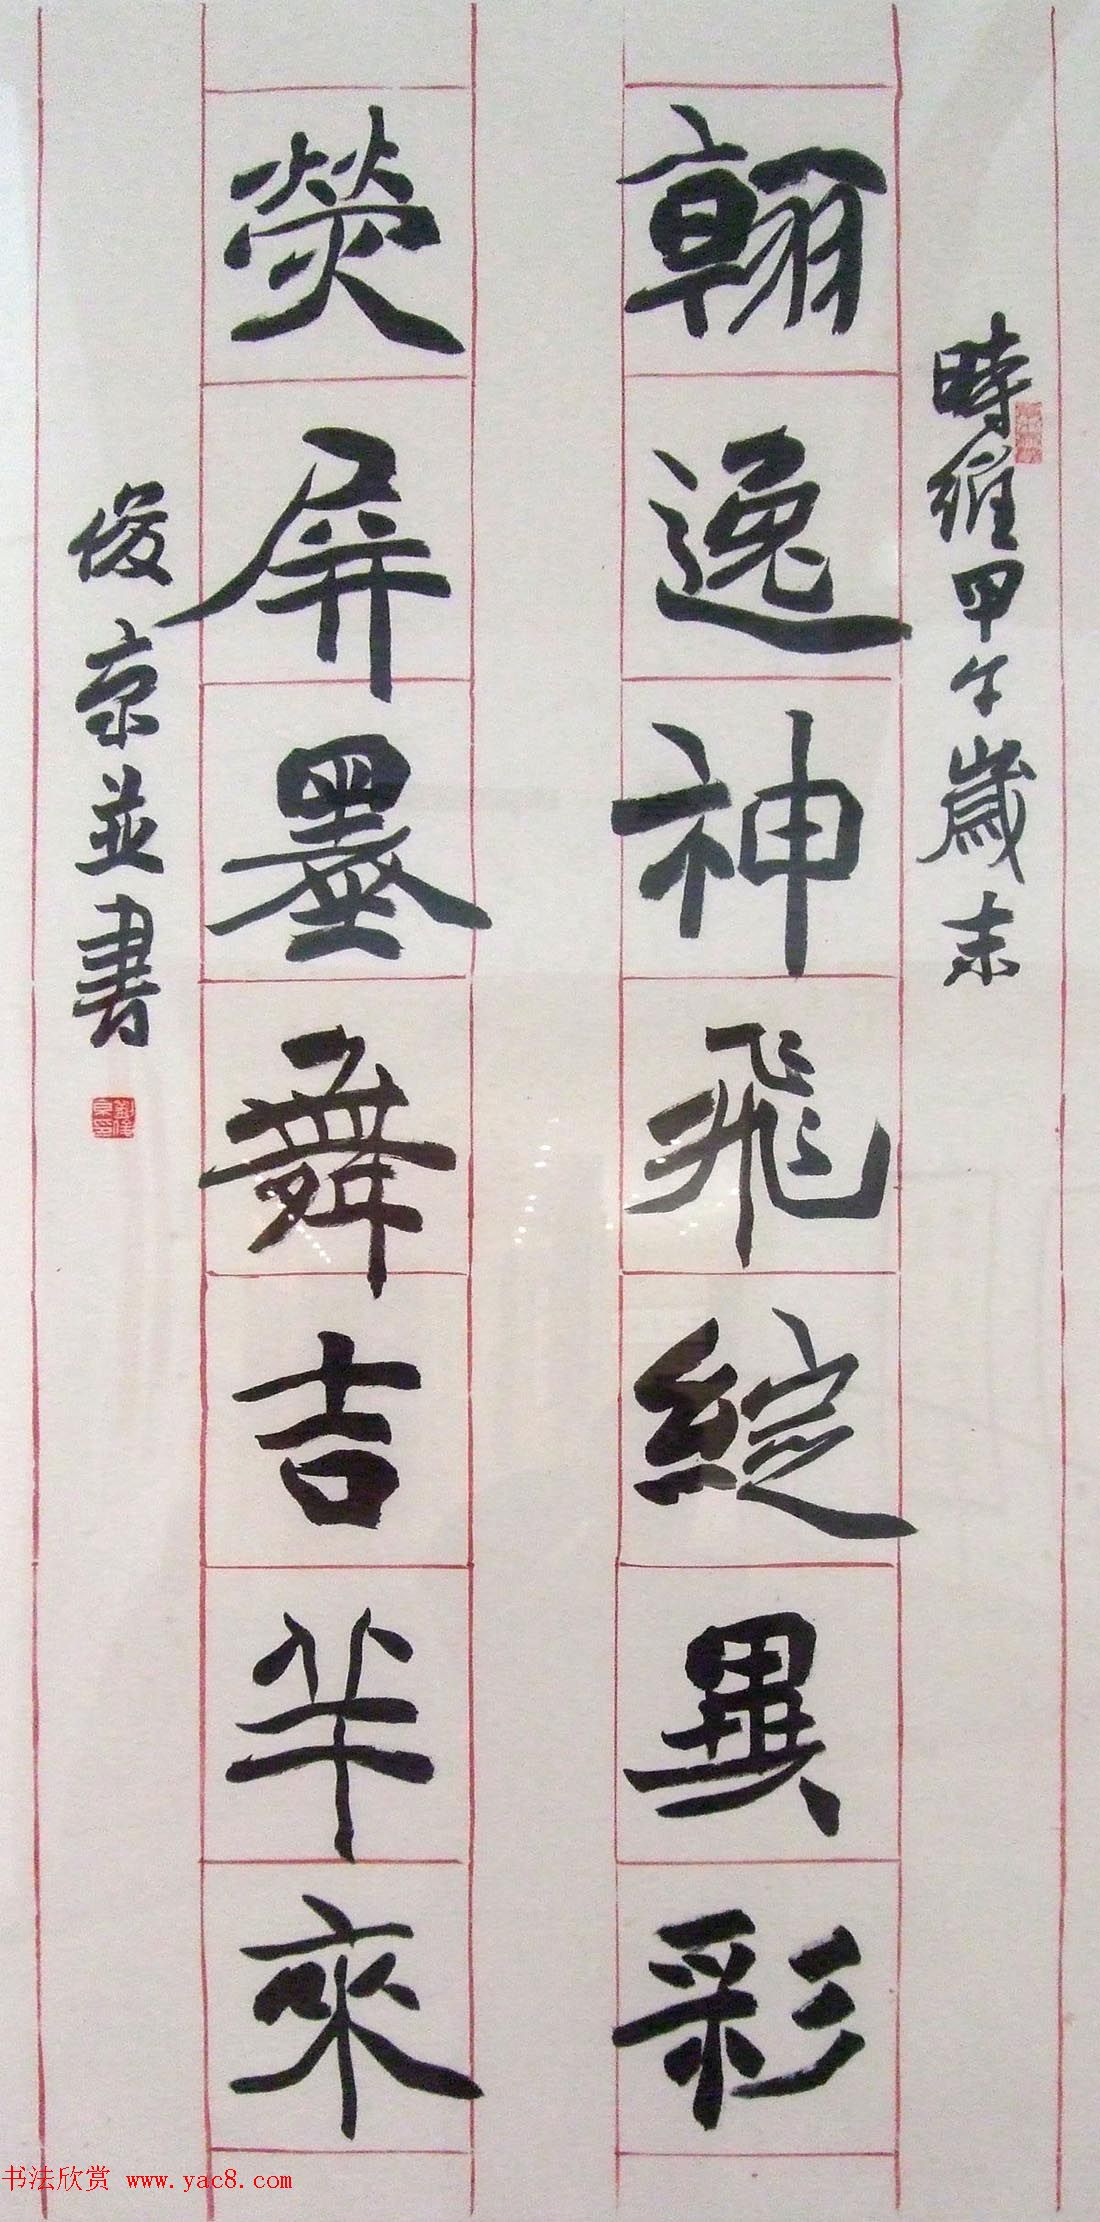 時維甲午歲末
翰逸神飛綻異彩
熒屏墨舞吉羊來
俊京並書
书法欣赏 www.yac8.com